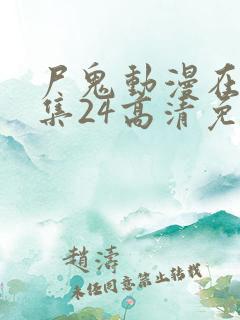 尸鬼動漫在
集24高清免
趙濤
未经同意禁止转载